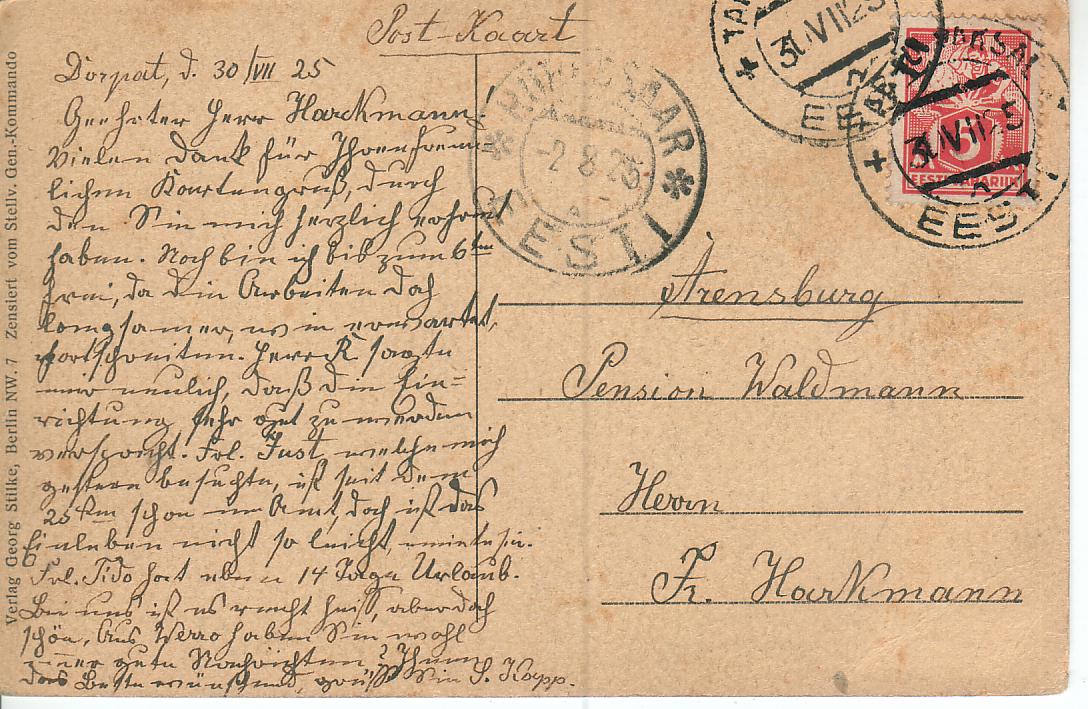 Post-Kaart
Dorpat, d. 30/VII 25
Geehrter Herr Harckmann.
Vielen Dank für Ihren freund-
lichen Kartengruß, durch
den Sie mich herzlich erfreut
haben. Noch bin ich bis zum 6ten
frei, da die Arbeiten doch
langsamer, als wie erwartet,
fortschreiten. Herr R. sagte
mir neulich, daß die Ein=
richtung sehr gut zu werden
verspricht. Frl. Just, welche mich
gestern besuchte, ist seit dem
25ten schon im Amt, doch ist das
Einleben nicht so leicht, meinte sie.
Frl. Tido hat eben 14 Tage Urlaub.
Bei uns ist es recht heiß, aber doch
schön. Aus Werro haben Sie wohl
immer gute Nachrichten? Ihnen
das Beste wünschend, grüßt Sie S. Kopp.
Arensburg
Pension Waldmann
Herrn
Fr. Harkmann
KURESSAAR
-2.8.25
EESTI
TARTU
31.VII 25
EESTI
TARTU VAKSAL
31.VII 25
EESTI
5
EESTI VABARIIK
Verlag Georg Stilke, Berlin NW. 7 Zensiert vom Stellv. Gen.-Kommando